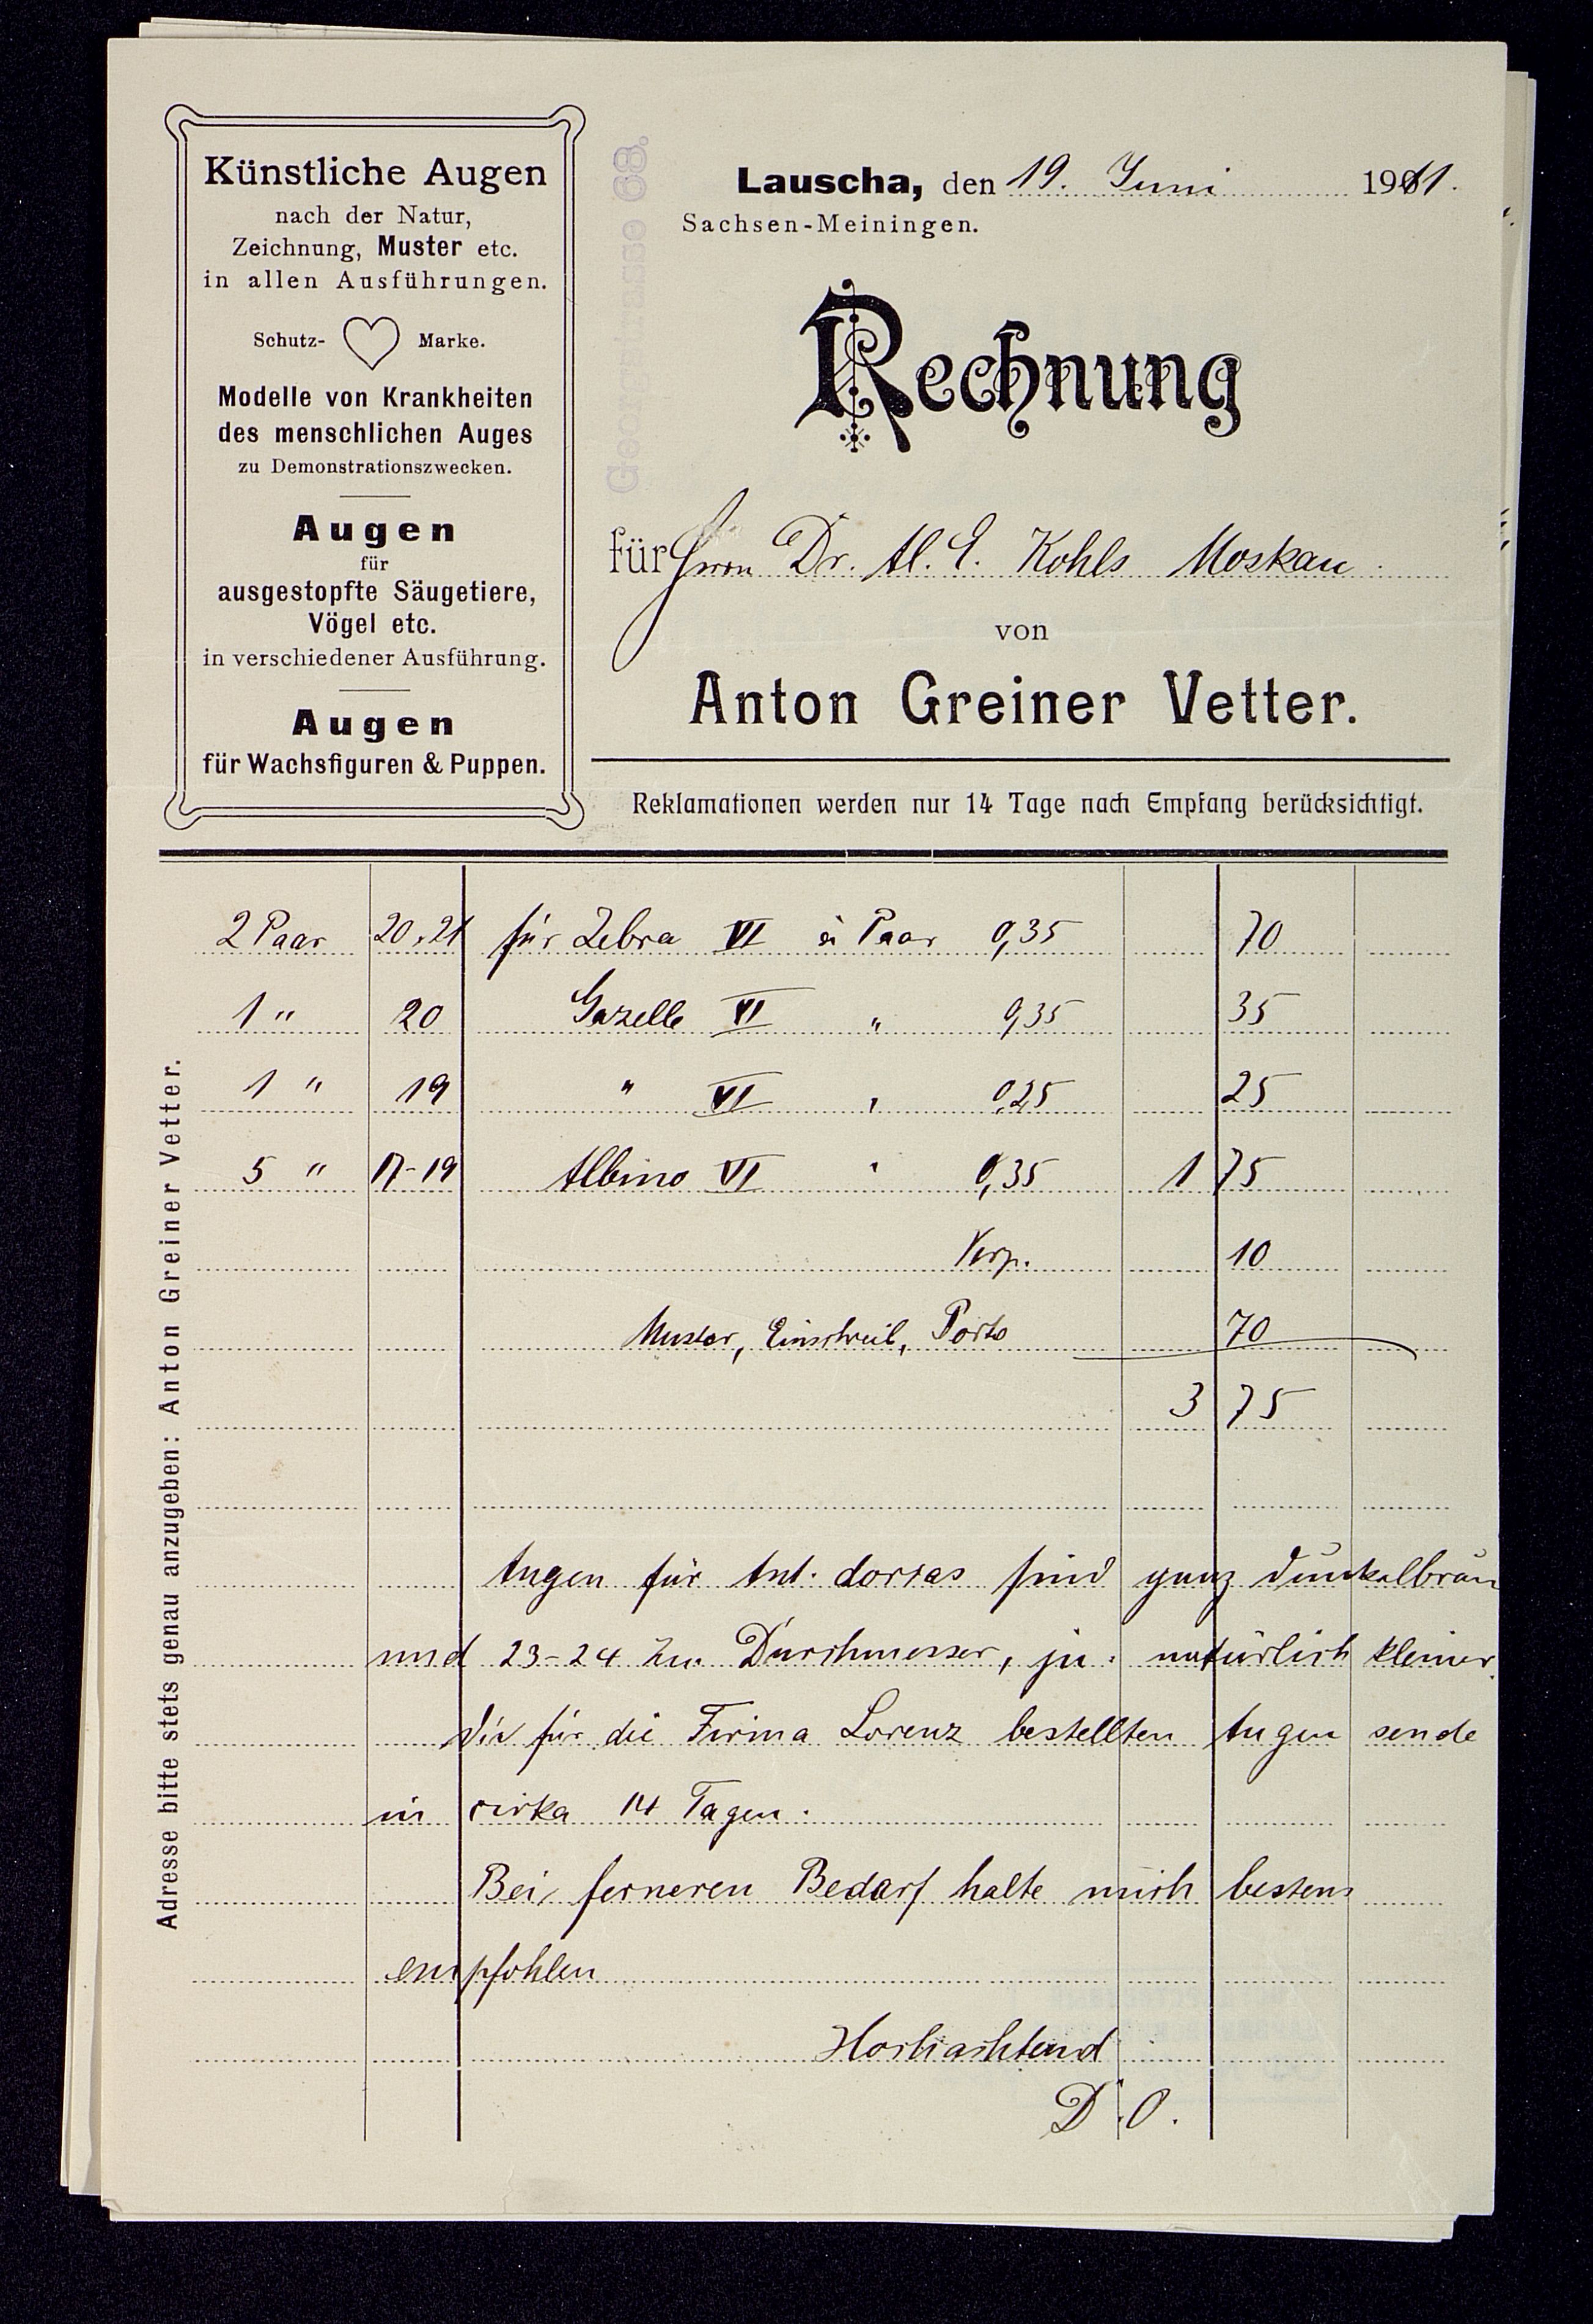 Künstliche Augen
nach der Natur,
Zeichnung, Muster etc.
in allen Ausführungen.
Schutz- Marke.
Modelle von Krankheiten
des menschlichen Auges
zu Demonstrationszwecken.
Augen
für
ausgestopfte Säugetiere,
Vögel etc.
in verschiedener Ausführung.
Augen
für Wachsfiguren & Puppen.
Lauscha, den 19. Juni 1911.
Sachsen-Meiningen.
Rechnung
für Herrn Dr. Al. E. Kohls Moskau.
von
Anton Greiner Vetter.
Reklamationen werden nur 14 Tage nach Empfang berücksichtigt.
Adresse bitte stets genau anzugeben: Anton Greiner Vetter.
2 Paar 20.21 für Zebra VI à Paar 0,35 70
1 " 20 Gazelle VI " 0,35 35
1 " 19 " VI " 0,25 25
5 " 17-19 Albino VI " 0,35 1 75
Verp. 10
Muster, Einschreib, Porto 70
3 75
Augen für Ant. dorcas sind ganz dunkelbraun
und 23-24 Durchmesser, ju. natürlich kleiner.
Die für die Firma Lorenz bestellten Augen sende
in cirka 14 Tagen.
Bei ferneren Bedarf halte mich bestens
empfohlen
Hochachtend
D. O.
Georgstrasse 68.